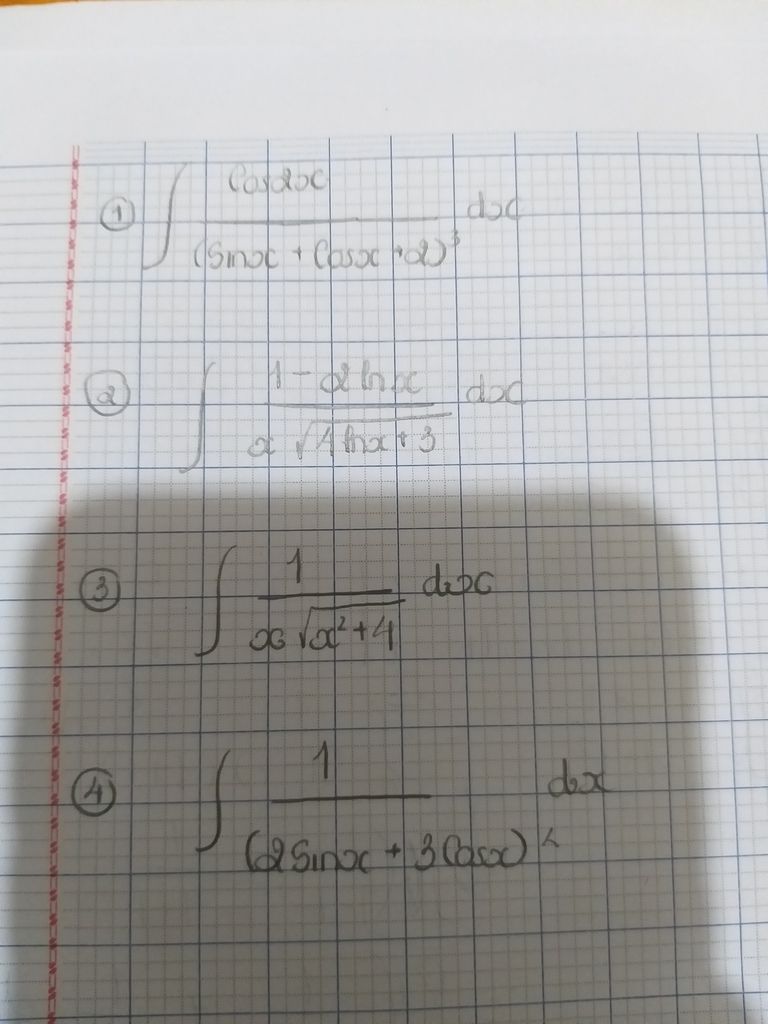 ① ∫ cos2x / (sinx + cosx + 2)³ dx
② ∫ 1 - 2lnx / x √4lnx + 3 dx
③ ∫ 1 / x √x² + 4 dx
④ ∫ 1 / (2sinx + 3cosx)² dx